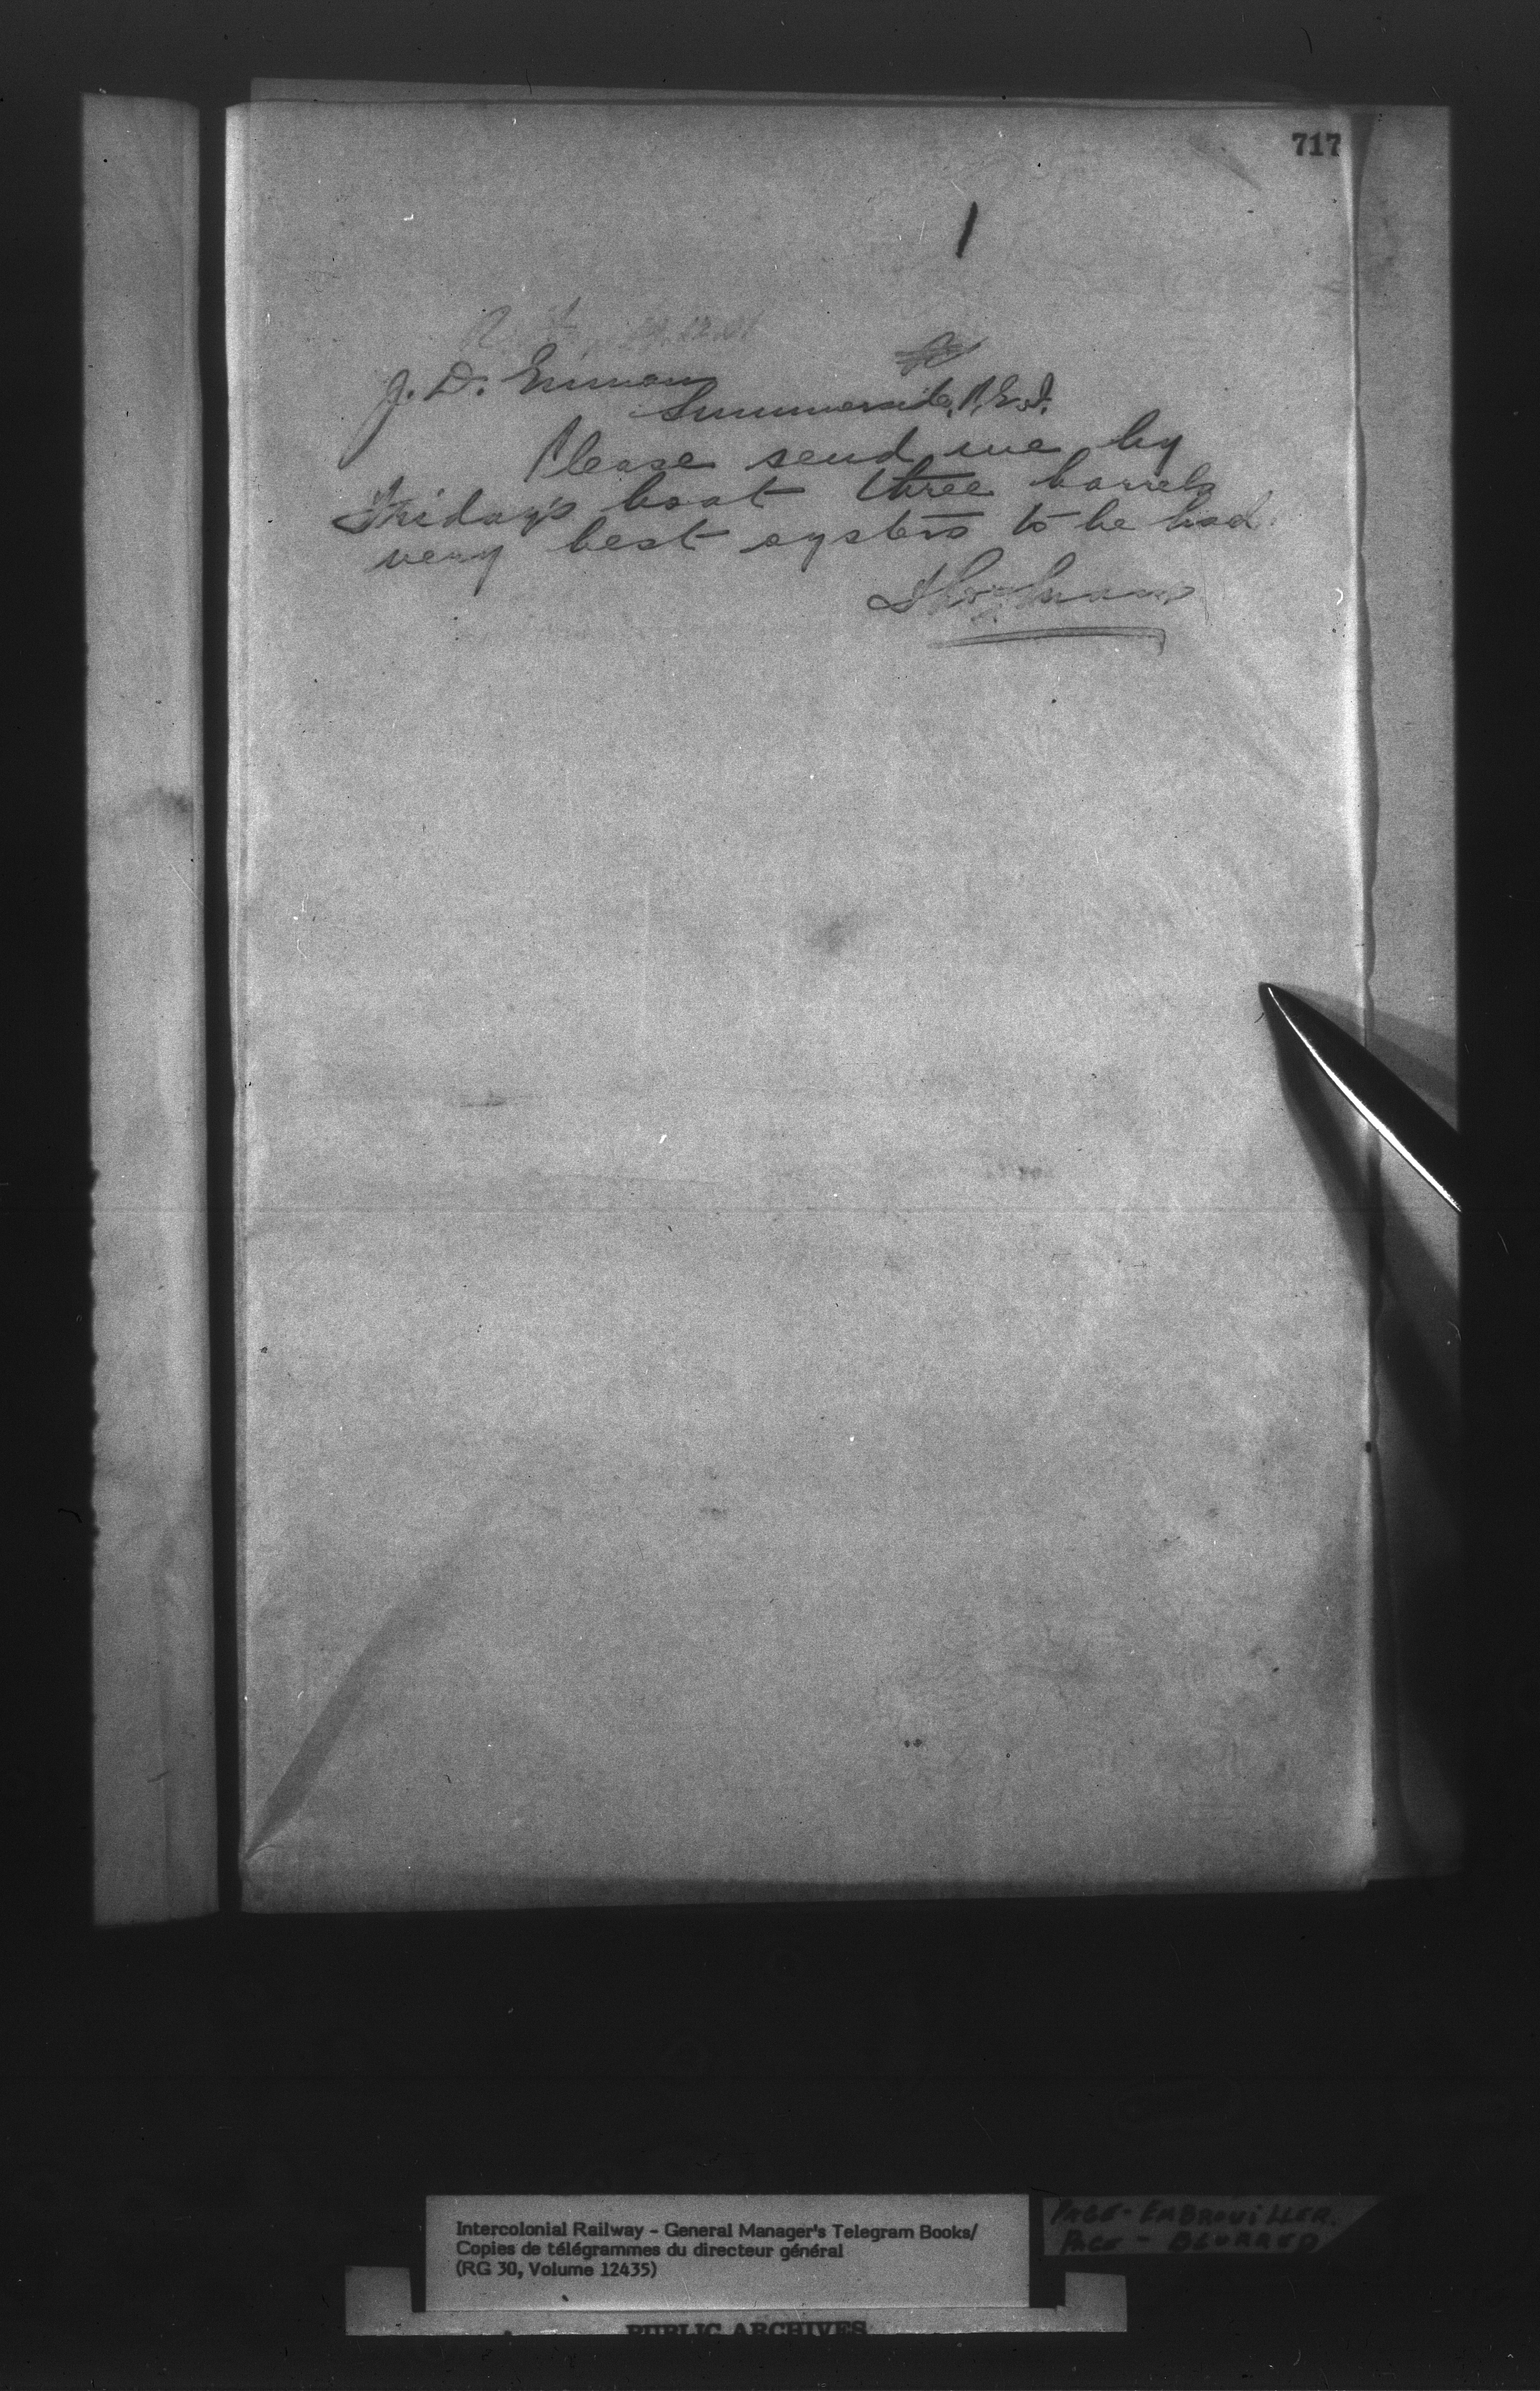 717
J. D.
Summerside, P.E.I.
Please send me by
Friday's boat three barrels
very best oysters to be had.
Intercolonial Railway - General Manager's Telegram Books/
Copies de télégrammes du directeur général
(RG 30, Volume 12435)
PAGE - EMBROUILLER.
PAGE - BLURRED
PUBLIC ARCHIVES